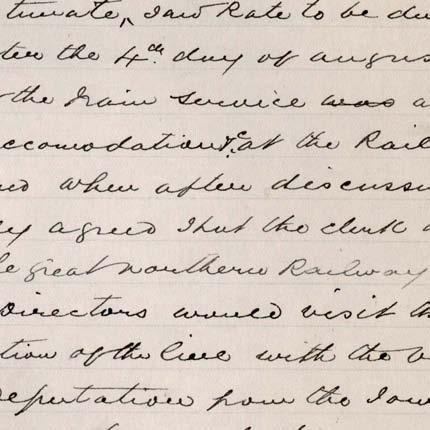 timate, said Rate to be du
ter the 4th day of augus
the Train Service was a
ccomodation &c at the Rail
ed when after discussi
ey agreed that the clerk
e great northern Railway
Directors would visit th
tion of the line with the v
deputation from the Tow